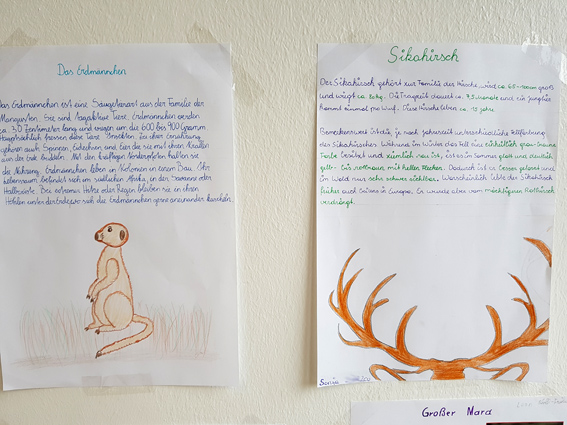 Das Erdmännchen
Das Erdmännchen ist eine Säugetierart aus der Familie der
Mangusten. Sie sind tagaktive Tiere. Erdmännchen werden
ca. 30 Zentimeter lang und wiegen um die 600 bis 900 Gramm.
Hauptsächlich fressen diese Tiere Insekten. Zu ihrer Ernährung
gehören auch Spinnen, Eidechsen und Eier die sie mit ihren Krallen
aus der Erde buddeln. Mit den kräftigen Vorderpfoten halten sie
die Nahrung. Erdmännchen leben in Kolonien in einem Bau. Ihr
Lebensraum befindet sich im südlichen Afrika, in der Savanne oder
Halbwüste. Bei extremer Hitze oder Regen bleiben sie in ihren
Höhlen unter der Erde, wo sich die Erdmännchen gerne aneinander kuscheln.
Sikahirsch
Der Sikahirsch gehört zur Familie der Hirsche, wird ca. groß
und wiegt ca. 80kg. Die Tragzeit dauert ca. 7,5 Monate und ein Jungtier
kommt einmal pro Wurf. Diese Hirsche leben ca. 15 Jahre.
Bemerkenswert ist die je nach Jahreszeit unterschiedliche Fellfärbung
des Sikahirsches. Während im Winter das Fell eine einheitlich grau-braune
Farbe besitzt und ziemlich rau ist, ist es im Sommer glatt und deutlich
gelb- bis rotbraun mit hellen Flecken. Dadurch ist es besser getarnt und
im Wald nur sehr schwer sichtbar. Warscheinlich lebte der Sikahirsch
früher auch in Europa. Er wurde aber vom mächtigeren Rothirsch
verdrängt.
Sonja
Großer Mara